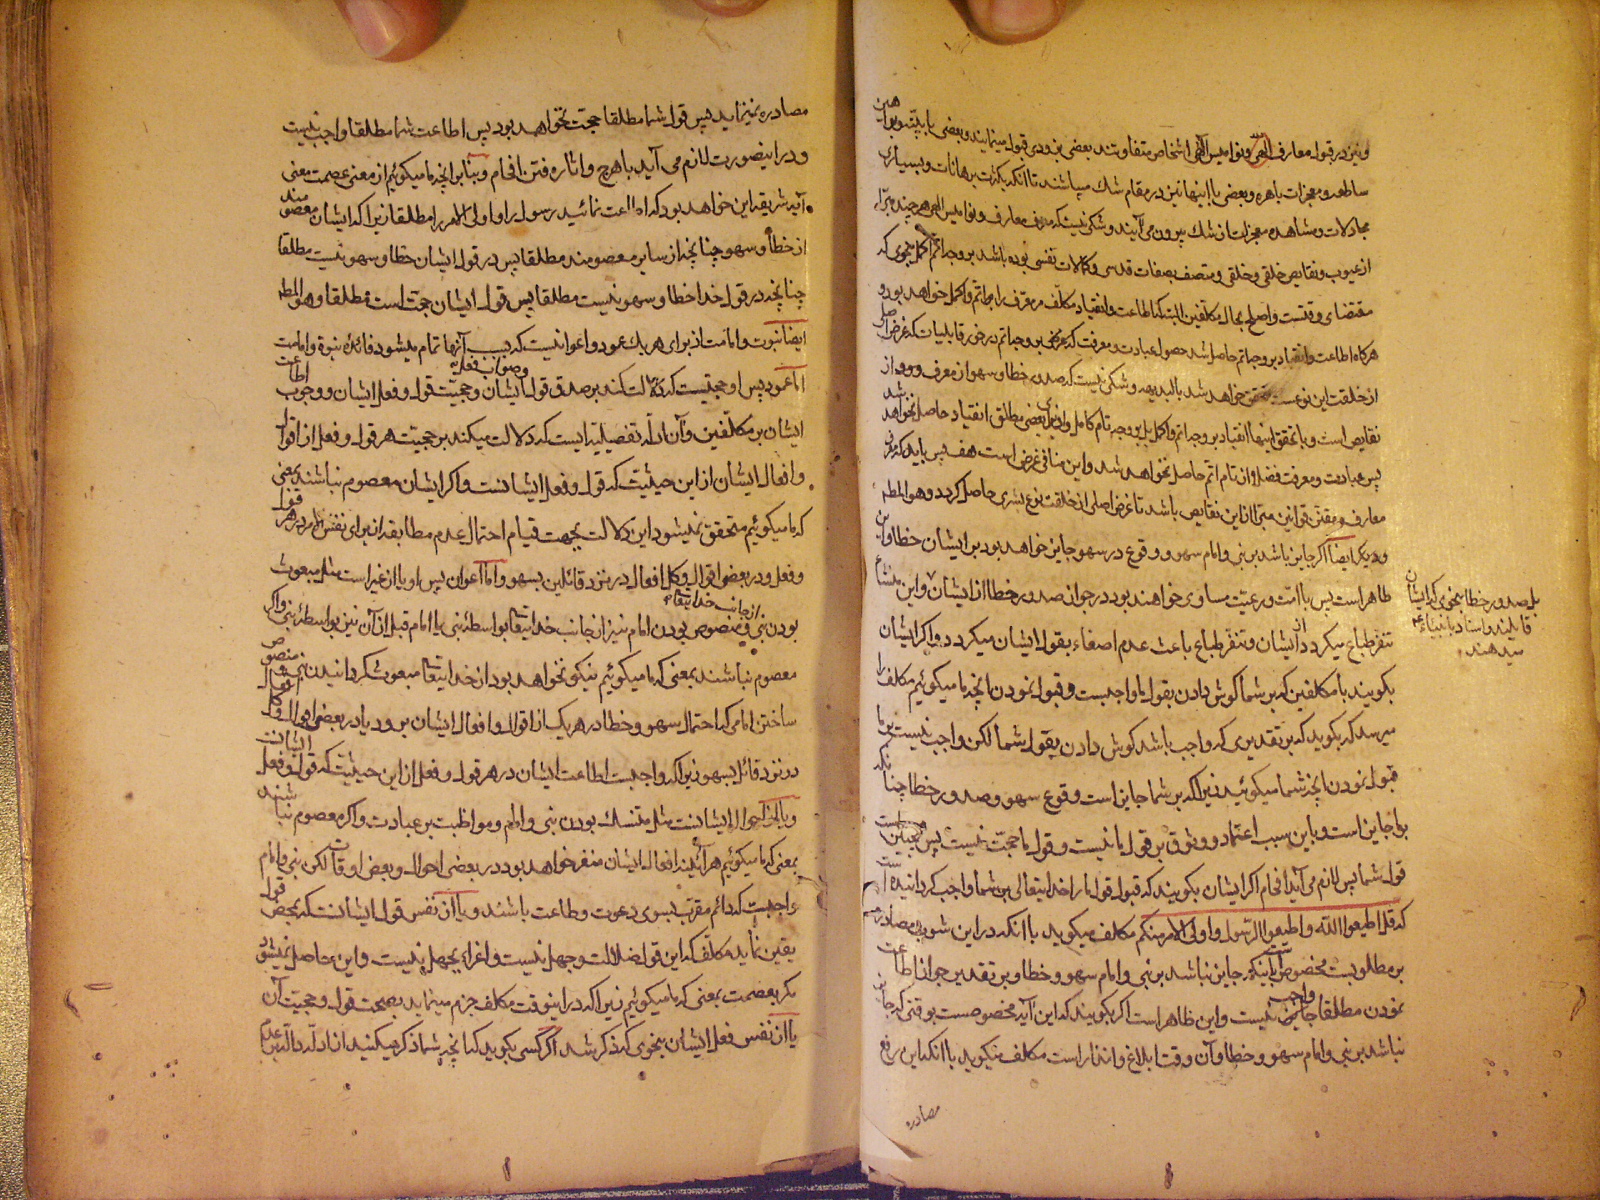 و نیز در قول معارف الهی و نوامیس الهی اشخاص متفاوتند بعضی بزودی قبول مینمایند و بعضی با بینه و براهین
ساطعه و معجزات باهره و بعضی با اینها نیز در مقام شک میباشند تا آنکه بکثرت برهانات و بسیاری
مجادلات و مشاهده معجزات از شک بیرون می آیند و شکی نیست که معرف معارف و نوامیس الهی هر چند مبرّا
از عیوب و نقایص خلقی و خلقی و متصف بصفات قدسی و کمالات نفسی بوده باشد بر وجه اتم اکمل بنحوی که
مقتضای وقتست و اصلح بحال مکلفین البته که اطاعت و انقیاد مکلف مر معرف را بر وجه اتم و اکمل خواهد بود و
هرکاه اطاعت و انقیاد بر وجه اتم حاصل شد حصول عبادت و معرفت که بر وجه اتم در خور قابلیات که غرض اصلی
از خلقت این نوعست متحقق خواهد شد بالبدیهه و شکی نیست که صدور خطا و سهو از معرف و ورود از
نقایص است و با تحقق اینها انقیاد بر وجه اتم و اکمل بل بر وجه تام کامل و از برای بعضی مطلق انقیاد حاصل نخواهد شد
پس عبادت و معرفت فضلا از تام اتم حاصل نخواهد شد و این منافی غرض است هف پس باید که معرف
معارف و مقنن قوانین مبرّا از این نقایص باشد تا غرض اصلی از خلقت نوع بشری حاصل کردد و هو المطلوب
و دیگر ایضا اکر جایز باشد بر نبی و امام سهو و وقوع در سهو جایز خواهد بود بر ایشان خطا و این
ظاهر است پس با امت و رعیت مساوی خواهند بود در جواز صدور خطا از ایشان و این منشاء
بل صدور خطا بنحوی که ایشان
قایلند و اسناد بانبیاء ع
میدهند
تنفر طباع میکردد از ایشان و تنفر طباع باعث عدم اصغاء بقول ایشان میکردد و اکر ایشان
بکویند با مکلفین که بر شما کوش دادن بقول ما واجبست و قبول نمودن آنچه ما میکوئیم مکلف را
میرسد که بکوید که بر تقدیری که واجب باشد کوش دادن بقول شما لکن واجب نیست بر ما
قبول نمودن آنچه شما میکوئید زیرا که بر شما جایز است وقوع سهو و صدور خطا چنانکه
بر ما جایز است و باین سبب اعتماد و وثوق بر قول ما نیست و قول ما حجت نیست پس همچنین است
قول شما پس لازم می آید افحام اکر ایشان بکویند که قبول قول ما را خدایتعالی بر شما واجب کردانیده است
که قل اطیعوا الله و اطیعوا الرسول و اولی الامر منکم مکلف میکوید با آنکه در این شوب مصادره
بر مطلوبست مخصوص است باینکه جایز نباشد بر نبی و امام سهو و خطا و بر تقدیر جواز اطاعت
نمودن مطلقا واجب نیست و این ظاهر است اکر بکویند که این آیه مخصوصست بوقتی که جایز
نباشد بر نبی و امام سهو و خطا و آن وقت ابلاغ و انذار است مکلف میکوید با آنکه این رفع
مصادره
مصادره نمینماید پس قول شما مطلقا حجت نخواهد بود پس اطاعت شما مطلقا واجب نیست
و در اینصورت لازم می آید باهرج و اثاره فتن افحام و بنابر آنچه ما میکوئیم از معنی عصمت معنی
آیه شریفه این خواهد بود که اطاعت نمائید رسول را و اولی الامر را مطلقا زیرا که ایشان معصومند
از خطا و سهو چنانچه از سایر معصومند مطلقا پس در قول ایشان خطا و سهو نیست مطلقا
چنانچه در قول خدا خطا و سهو نیست مطلقا پس قول ایشان حجت است مطلقا و هو المطلوب
ایضا نبوت و امامت از برای هر یک عمود و اعوانیست که بسبب آنها تمام میشود فائده نبوة و امامت
اما عمود پس او حجتیست که دلالت کند بر صدق قول ایشان و صواب فعل و حجیت قول و فعل ایشان و وجوب اطاعت
ایشان بر مکلفین و آن ادله تفصیلیه ایست که دلالت میکند بر حجیت هر قول و فعل از اقوال
و افعال ایشان از این حیثیت که قول و فعل ایشانست و اکر ایشان معصوم نباشند بمعنی
که ما میکوئیم متحقق نمیشود این دلالت بجهت قیام احتمال عدم مطابقه از برای نفس الامر در هر قول
و فعل و در بعضی اقوال و کل افعال در نزد قائلین بسهو و اما اعوان پس او یا از غیر است مثل مبعوث
بودن نبی از جانب خدایتعالی و منصوص بودن امام نیز از جانب خدایتعالی بواسطه نبی یا امام قبل از آن نیز بواسطه نبی و اکر
معصوم نباشند بمعنی که ما میکوئیم نیکو نخواهد بود از خدایتعالی مبعوث کردانیدن نبی و منصوص
ساختن امامی که احتمال سهو و خطا در هر یک از اقوال و افعال ایشان برود یا در بعضی اقوال و کل افعال
در نزد قائل بسهو زیرا که واجبست اطاعت ایشان در هر قول و فعل از این حیثیت که قول و فعل ایشانست
و یا از احوال ایشانست مثل متنسک بودن نبی و امام و مواظبت بر عبادت و اکر معصوم نباشند
بمعنی که ما میکوئیم هر آینه افعال ایشان منفر خواهد بود در بعضی احوال و بعض اوقات لکن نبی و امام
واجبست که دائم مقرب بسوی دعوت و طاعت باشند و یا از نفس قول ایشانست که بمحض قول
یقین نماید مکلف که این قول ضلالت و جهل نیست و اغراء بجهل نیست و این حاصل نمیشود
مکر بعصمت بمعنی که ما میکوئیم زیرا که در اینوقت مکلف جزم مینماید بصحت قول و حجیت آن
یا از نفس فعل ایشان بنحوی که ذکر شد اکر کسی بکوید که آنچه شما ذکر میکنید از ادله داله بر عدم